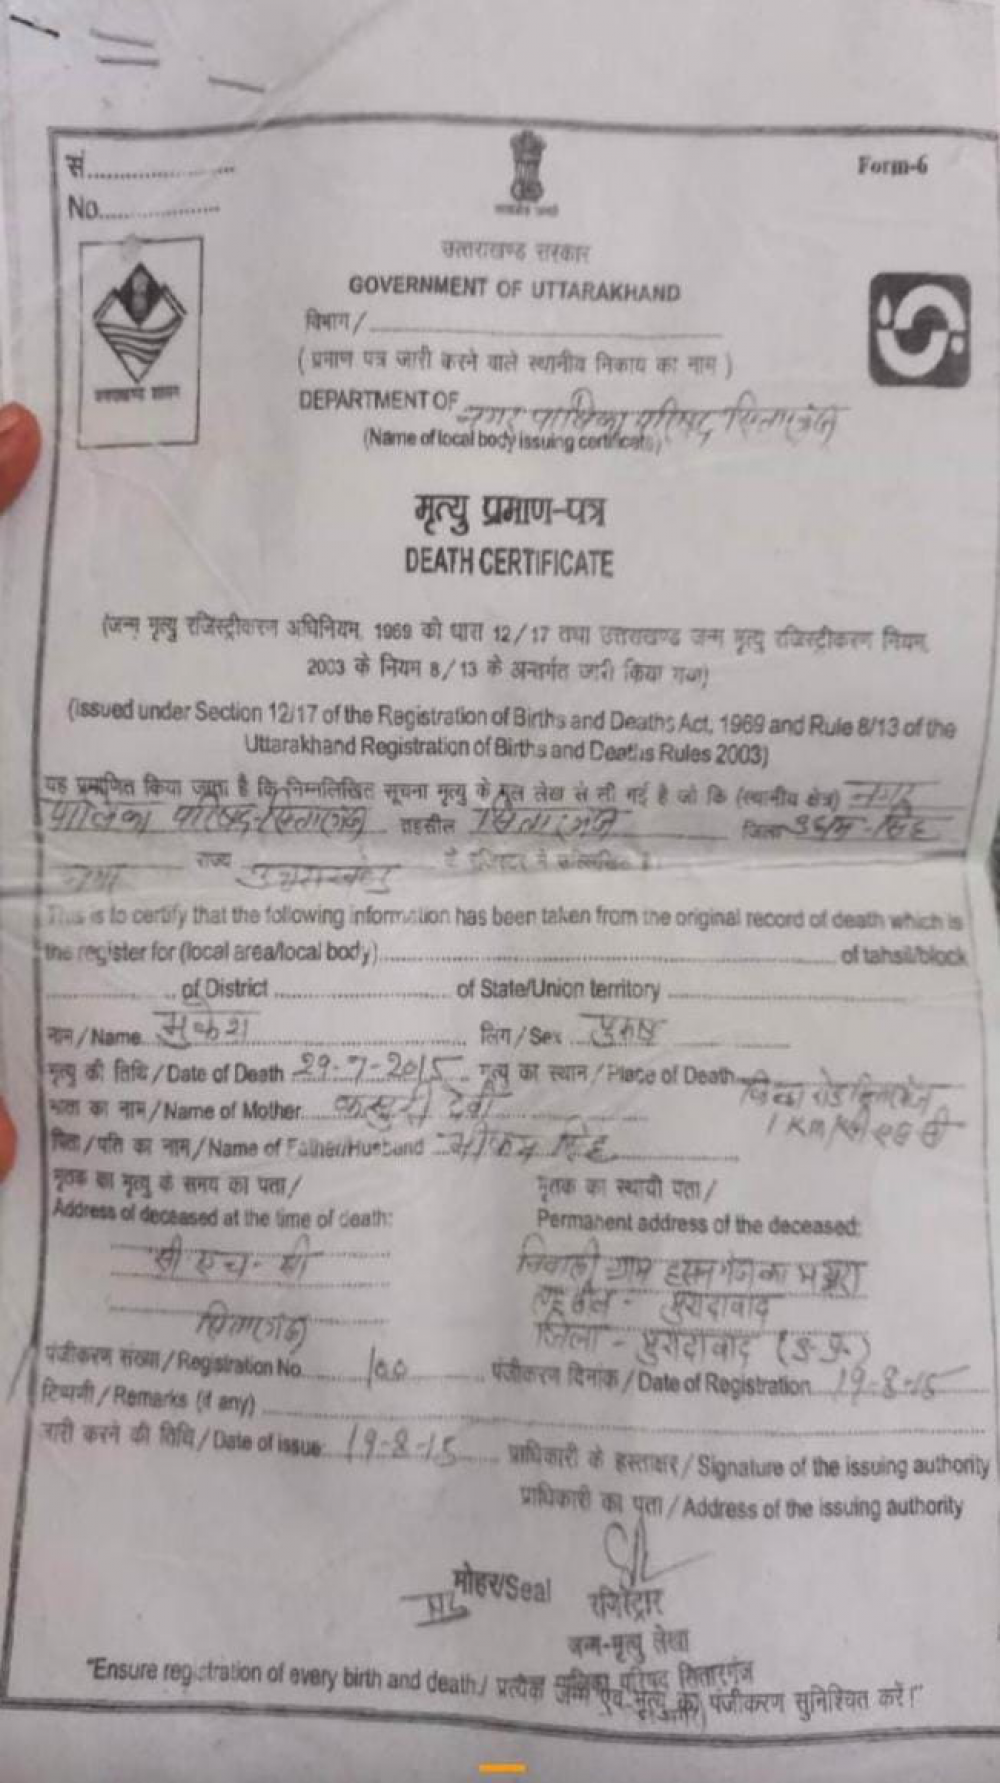 सं....................
Form-6
No....................
उत्तराखण्ड सरकार
GOVERNMENT OF UTTARAKHAND
विभाग /
( प्रमाण पत्र जारी करने वाले स्थानीय निकाय का नाम )
DEPARTMENT OF नगर पालिका परिषद सितारगंज
(Name of local body issuing certificate)
मृत्यु प्रमाण-पत्र
DEATH CERTIFICATE
(जन्म मृत्यु रजिस्ट्रीकरण अधिनियम, 1969 की धारा 12/17 तथा उत्तराखण्ड जन्म मृत्यु रजिस्ट्रीकरण नियम,
2003 के नियम 8/13 के अन्तर्गत जारी किया गया)
(issued under Section 12/17 of the Registration of Births and Deaths Act, 1969 and Rule 8/13 of the
Uttarakhand Registration of Births and Deaths Rules 2003)
यह प्रमाणित किया जाता है कि निम्नलिखित सूचना मृत्यु के मूल लेख से ली गई है जो कि (स्थानीय क्षेत्र) नगर
पालिका परिषद-सितारगंज तहसील सितारगंज जिला उधम-सिंह
नगर राज्य उत्तराखण्ड के रजिस्टर में उल्लिखित है।
This is to certify that the following information has been taken from the original record of death which is
the register for (local area/local body) of tahsil/block
of District of State/Union territory
नाम / Name मुकेश लिंग / Sex पुरुष
मृत्यु की तिथि / Date of Death 29-7-2015 मृत्यु का स्थान / Place of Death
माता का नाम / Name of Mother कस्तुरी देवी
1 KM
पिता / पति का नाम / Name of Father/Husband सिंह
मृतक का मृत्यु के समय का पता / मृतक का स्थायी पता /
Address of deceased at the time of death: Permanent address of the deceased:
सी. एच. सी निवासी ग्राम
तहसील - मुरादाबाद
सितारगंज जिला - मुरादाबाद (उ.प्र.)
पंजीकरण संख्या / Registration No. 100 पंजीकरण दिनांक / Date of Registration 19-8-15
टिप्पणी / Remarks (if any)
जारी करने की तिथि / Date of issue: 19-8-15 प्राधिकारी के हस्ताक्षर / Signature of the issuing authority
प्राधिकारी का पता / Address of the issuing authority
मोहर/Seal
रजिस्ट्रार
जन्म-मृत्यु लेखा
पालिका परिषद सितारगंज
"Ensure registration of every birth and death / प्रत्येक जन्म एवं मृत्यु का पंजीकरण सुनिश्चित करें।"